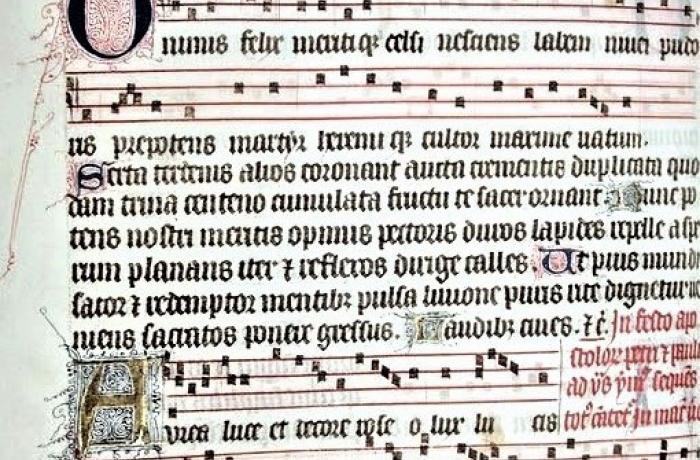 O nimis felix meritiqȝ celsi nesciens labem niuei pudo
ris prepotens martyr heremi qȝ cultor maxime uatum.
Serta terdenis alios coronant aucta crementis duplicata quo
dam trina centeno cumulata fructu te sacer ornant. Nunc po
tens nostri meritis opimis pectoris duros lapides repelle aspe
rum planans iter ⁊ reflexos dirige calles. Ut pius mundi
sator ⁊ redemptor mentibȝ pulsa liuione puris rite dignetur ue
niens sacratos ponere gressus. Laudibȝ ciues. ⁊c̄. In festo apo
stolor petri ⁊ pauli
ad vs̄ ymn̄ sequēs
Aurea luce et decore rose o lux lu cis